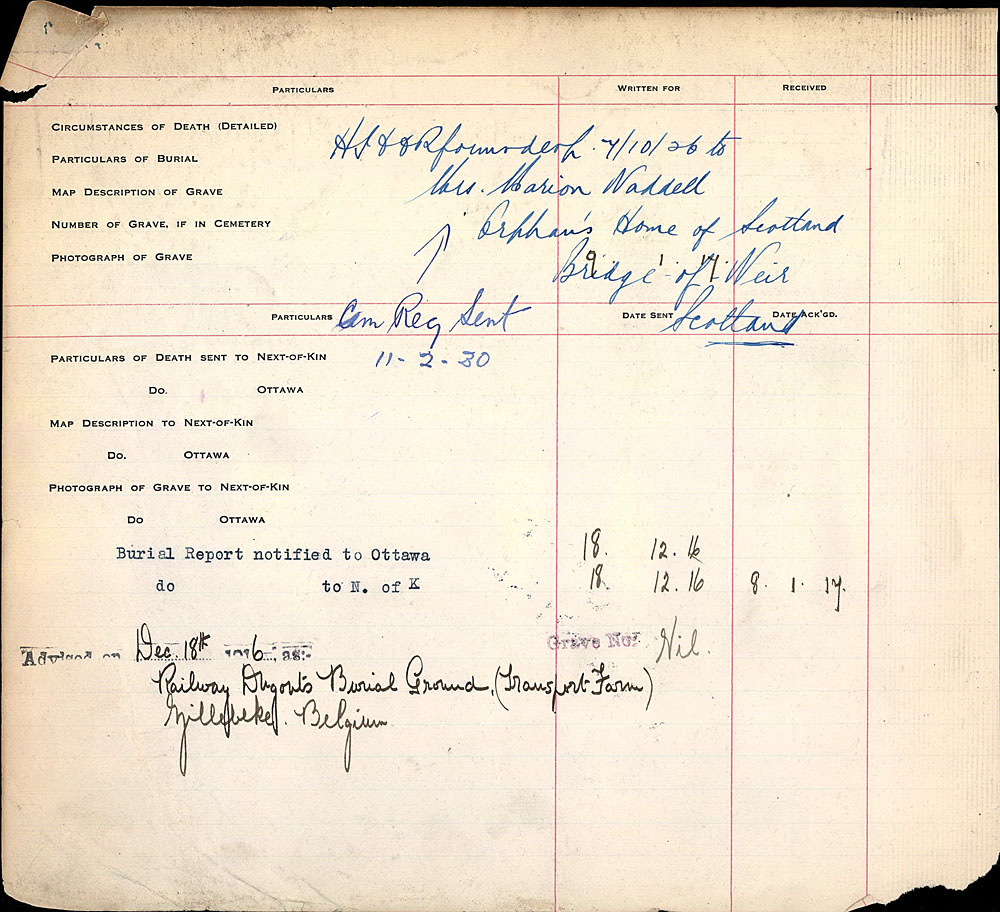 PARTICULARS WRITTEN FOR RECEIVED
CIRCUMSTANCES OF DEATH (DETAILED)
PARTICULARS OF BURIAL 7/10/26 to
MAP DESCRIPTION OF GRAVE Mrs. Marion Waddell
NUMBER OF GRAVE, IF IN CEMETERY Orphan's Home of Scotland
PHOTOGRAPH OF GRAVE Bridge of Weir
9 1 17
PARTICULARS Cem Reg Sent DATE SENT Scotland DATE ACK'GD.
PARTICULARS OF DEATH SENT TO NEXT-OF-KIN 11-2-30
DO. OTTAWA
MAP DESCRIPTION TO NEXT-OF-KIN
DO. OTTAWA
PHOTOGRAPH OF GRAVE TO NEXT-OF-KIN
DO OTTAWA
Burial Report notified to Ottawa 18. 12. 16
do to N. of K 18. 12. 16 8. 1. 17.
Advised on Dec. 18th 1916, as:- Grave No: Nil.
Railway Dugouts Burial Ground, (Transport Farm)
Zillebeke. Belgium